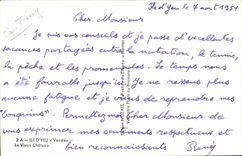 Ile d'Yeu le 7 août 1951
Cher Monsieur
Je suis vos conseils et je passe d'excellentes
vacances partagées entre la natation, le tennis,
la pêche et les promenades. Le temps nous
a été favorable jusqu'ici. Je ne ressens plus
aucune fatigue et je viens de reprendre mes
"bouquins". Permettez Cher Monsieur de
vous exprimer mes sentiments respectueux et
bien reconnaissants
2 A - ILE D'YEU (Vendée)
Le Vieux Château